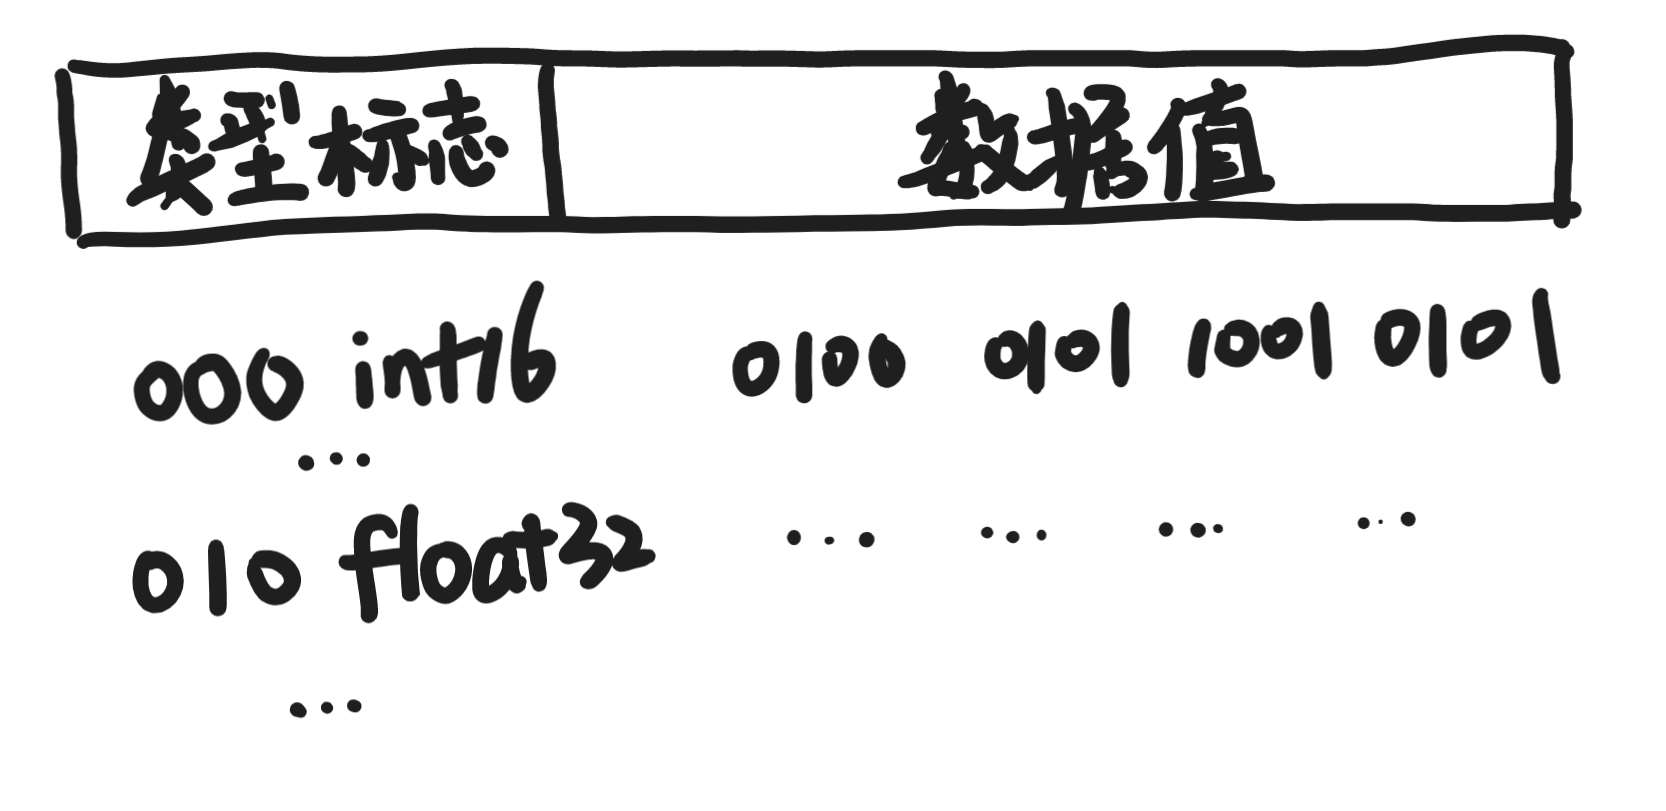 类型标志 数据值
000 int16 0100 0101 1001 0101
...
010 float32 ... ... ... ...
...